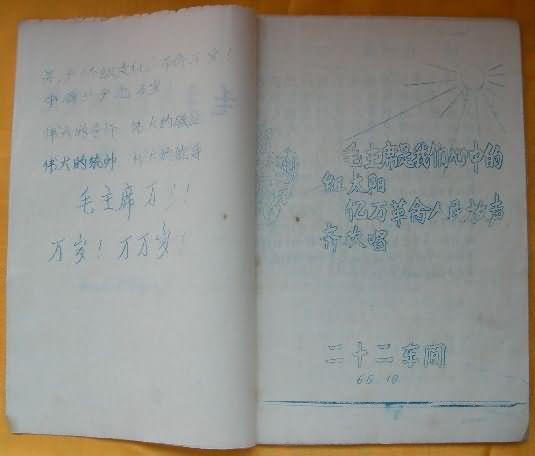 伟大的导师 伟大的领袖
伟大的统帅 伟大的舵手
毛主席万岁!
万岁! 万万岁!
毛主席是我们心中的
红太阳
亿万革命人民放声
齐欢唱
二十二车间
66.10